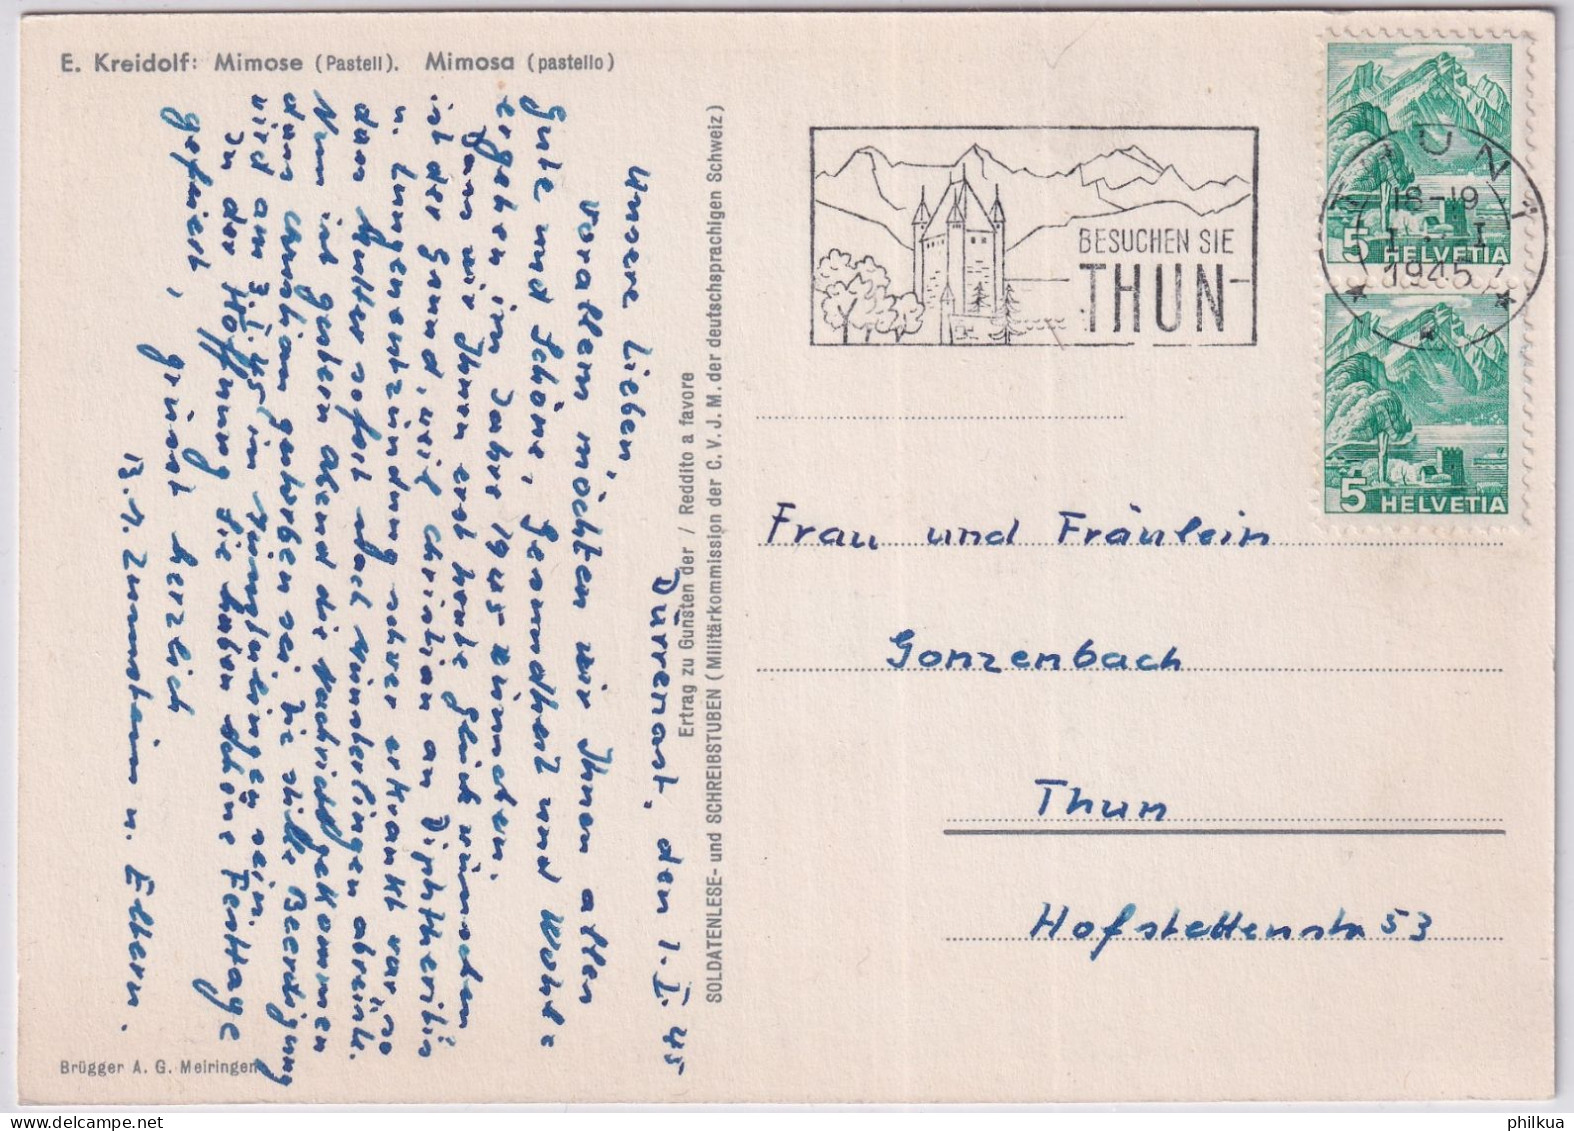 E. Kreidolf: Mimose (Pastell). Mimosa (pastello)
Dürrenast, den 1. I. 45
Unsere Lieben
Vorallem möchten wir Ihnen alles
Gute und Schöne, Gesundheit und Wohl=
ergehen im Jahre 1945 wünschen.
Dass wir Ihnen erst heute Glück wünschen
ist der Grund, weil Christian an Diphtheritis
u. Lungenentzündung schwer erkrankt war, so
dass Mutter sofort nach Münsterlingen abreiste.
Nun ist gestern abend die Nachricht gekommen
dass Christian gestorben sei. Die stille Beerdigung
wird am 3. I. 45 in Münsterlingen sein.
In der Hoffnung Sie haben schöne Festtage
gefeiert, grüsst herzlich
B. J. Zumstein u. Eltern.
Brügger A. G. Meiringen
Ertrag zu Gunsten der / Reddito a favore
SOLDATENLESE- und SCHREIBSTUBEN (Militärkommission der C. V. J. M. der deutschsprachigen Schweiz)
BESUCHEN SIE
THUN
THUN 1
18-19
1 I
1945
5 HELVETIA
5 HELVETIA
Frau und Fräulein
Gonzenbach
Thun
Hofstettenstr 53
philkua